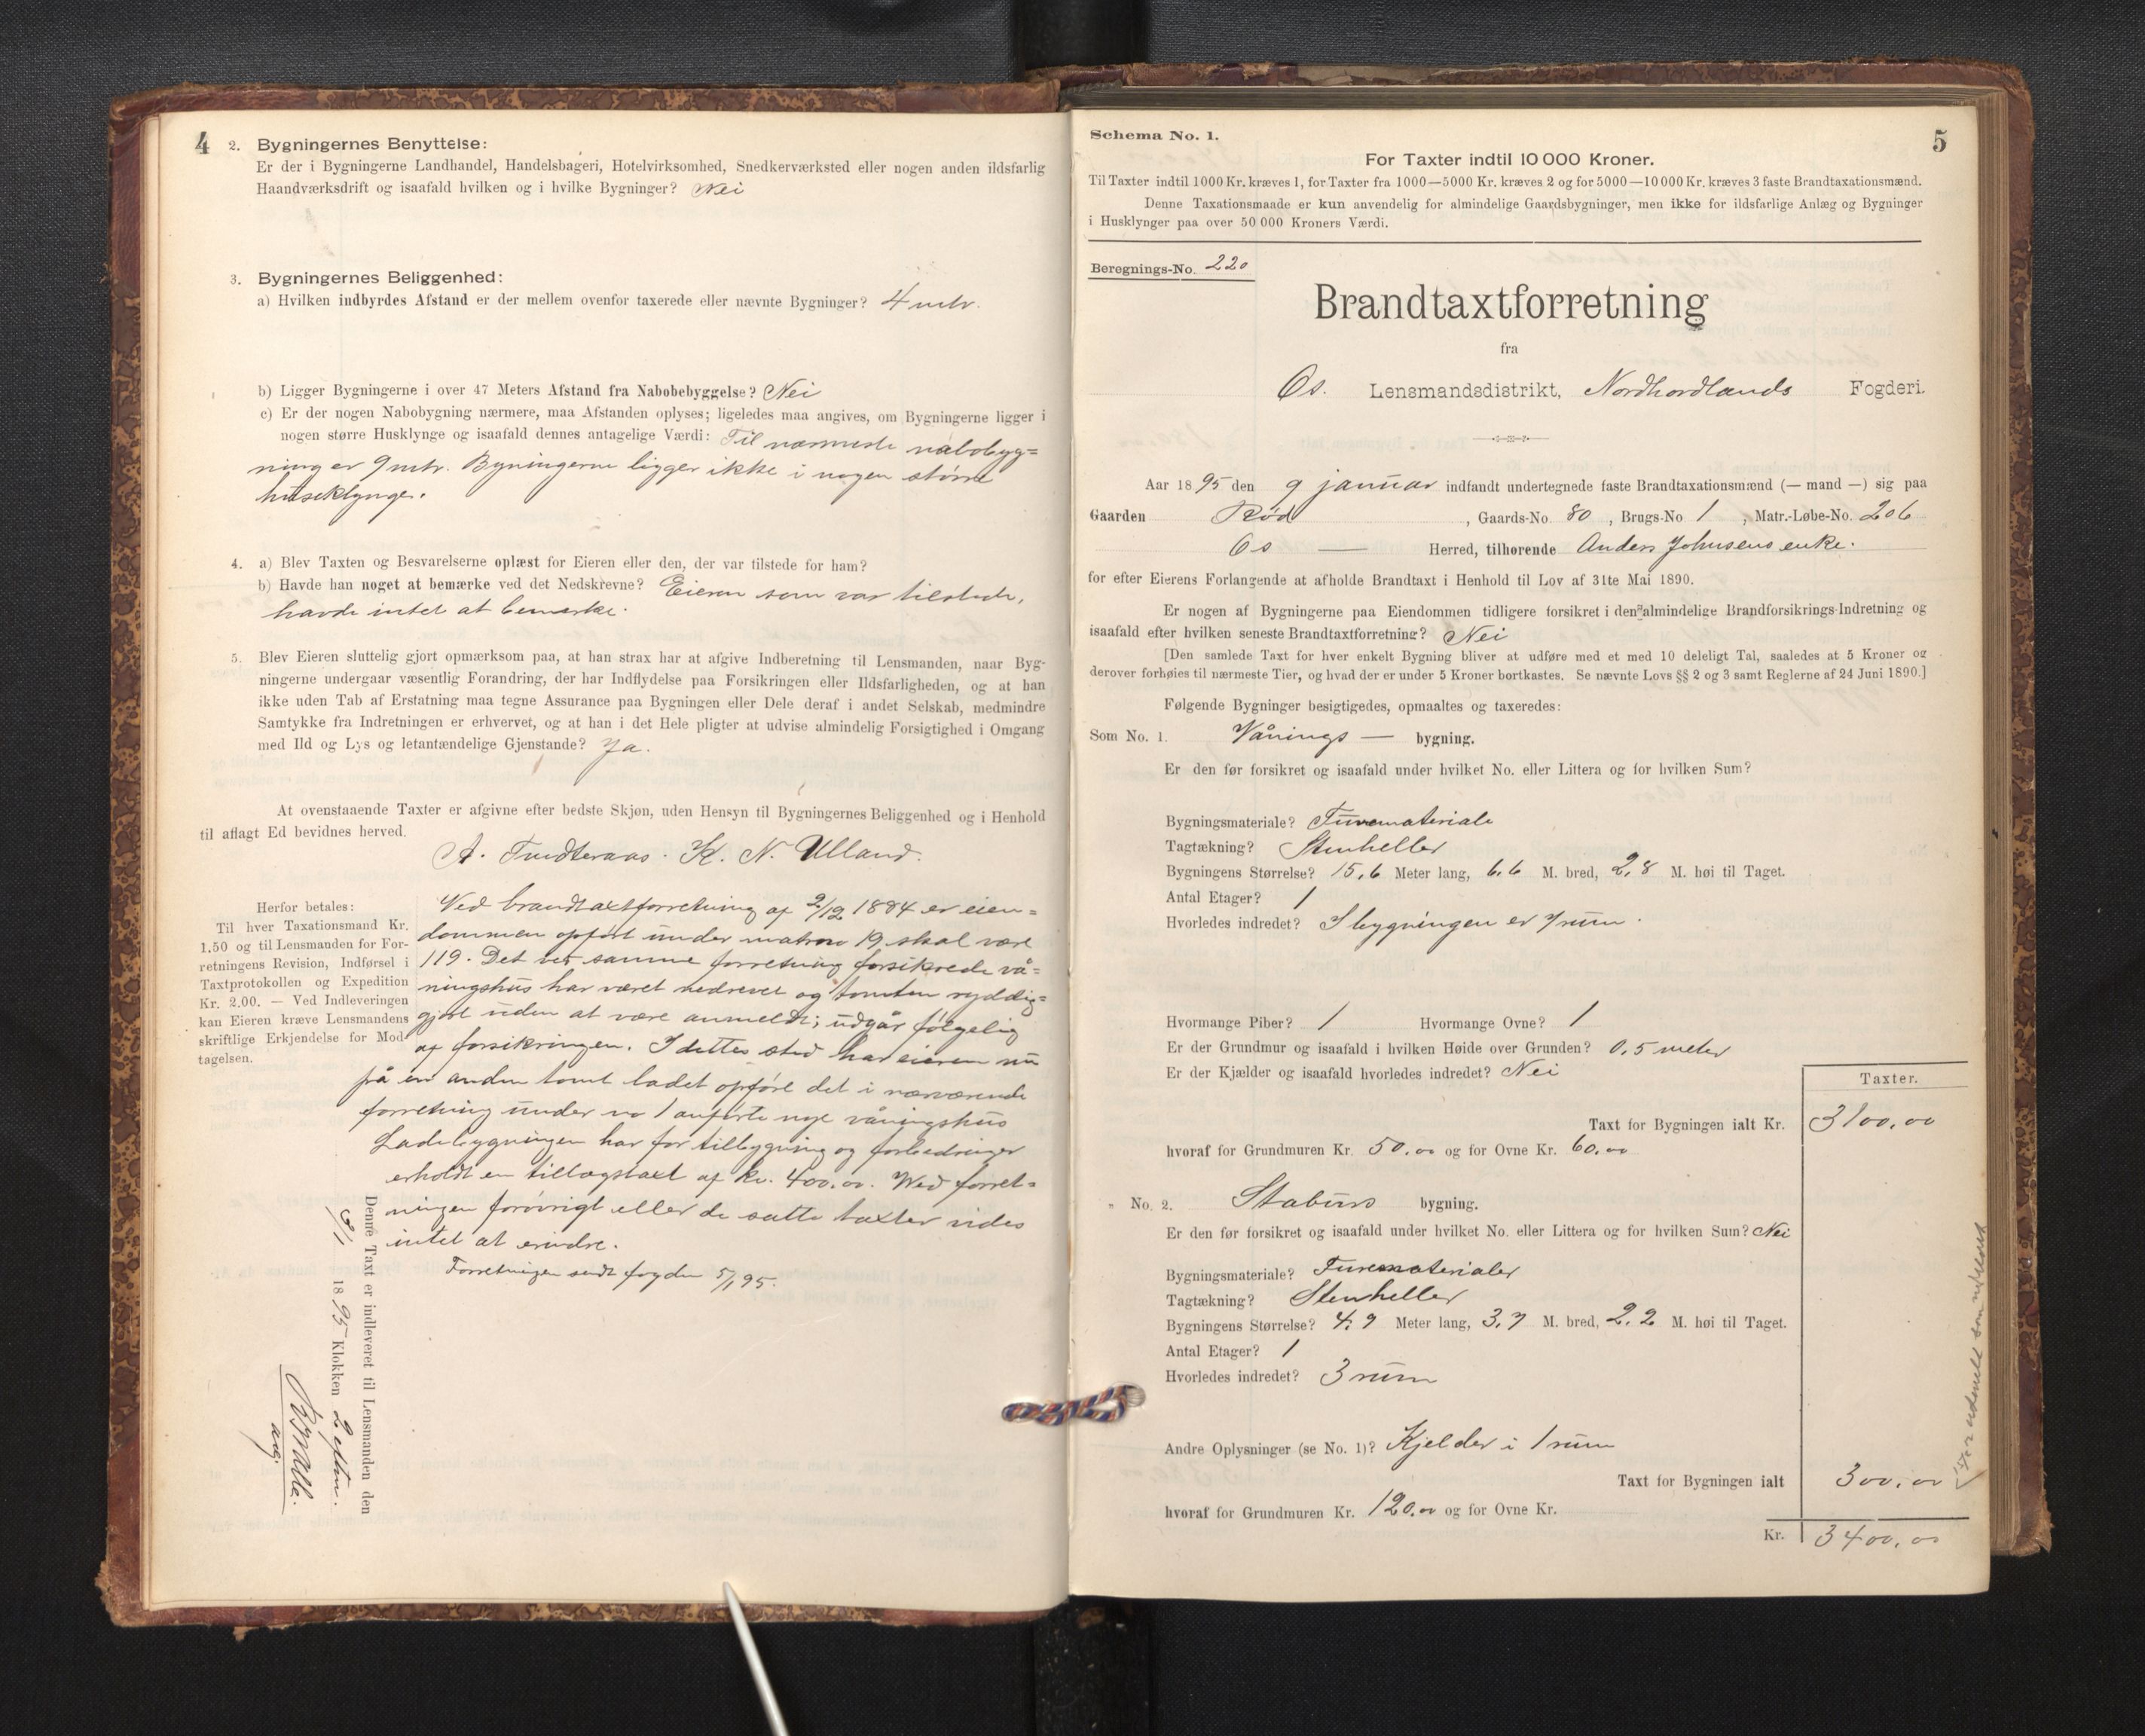 4
2. Bygningernes Benyttelse:
Er der i Bygningerne Landhandel, Handelsbageri, Hotelvirksomhed, Snedkerværksted eller nogen anden ildsfarlig
Haandværksdrift og isaafald hvilken og i hvilke Bygninger? Nei
3. Bygningernes Beliggenhed:
a) Hvilken indbyrdes Afstand er der mellem ovenfor taxerede eller nævnte Bygninger? 4 mtr.
b) Ligger Bygningerne i over 47 Meters Afstand fra Nabobebyggelse? Nei
c) Er der nogen Nabobygning nærmere, maa Afstanden oplyses; ligeledes maa angives, om Bygningerne ligger i
nogen større Husklynge og isaafald dennes antagelige Værdi: Til nærmeste nabobyg=
ning er 9 mtr. Bygningerne ligger ikke i nogen større
huseklynge.
4. a) Blev Taxten og Besvarelserne oplæst for Eieren eller den, der var tilstede for ham?
b) Havde han noget at bemærke ved det Nedskrevne? Eieren som var tilstede,
havde intet at bemærke.
5. Blev Eieren sluttelig gjort opmærksom paa, at han strax har at afgive Indberetning til Lensmanden, naar Byg-
ningerne undergaar væsentlig Forandring, der har Indflydelse paa Forsikringen eller Ildsfarligheden, og at han
ikke uden Tab af Erstatning maa tegne Assurance paa Bygningen eller Dele deraf i andet Selskab, medmindre
Samtykke fra Indretningen er erhvervet, og at han i det Hele pligter at udvise almindelig Forsigtighed i Omgang
med Ild og Lys og letantændelige Gjenstande? Ja.
At ovenstaaende Taxter er afgivne efter bedste Skjøn, uden Hensyn til Bygningernes Beliggenhed og i Henhold
til aflagt Ed bevidnes herved.
A. Tundteraas. K. N. Ulland.
Herfor betales:
Til hver Taxationsmand Kr.
1.50 og til Lensmanden for For-
retningens Revision, Indførsel i
Taxtprotokollen og Expedition
Kr. 2.00. — Ved Indleveringen
kan Eieren kræve Lensmandens
skriftlige Erkjendelse for Mod-
tagelsen.
Ved brandtaxtforretning af 2/12 1884 er eien=
dommen opført under matrno 19, skal være
119. Det ved samme forretning forsikrede vå=
ningshus har været nedrevet og tomten ryddig=
gjort uden at være anmeldt; udgår følgelig
af forsikringen. I dettes sted har eieren nu
på en anden tomt ladet opføre det i nærværende
forretning under no 1 anførte nye våningshus
Ladebygningen har for tilbygning og forbedringer
erholdt en tillægstaxt af kr. 400.00. Ved forret=
ningen forøvrigt eller de satte taxter vides
intet at erindre.
Forretningen sendt fogden 5/1 95.
Denne Taxt er indleveret til Lensmanden den
3/1 1895 Klokken 2 eftm.
5
Schema No. 1.
For Taxter indtil 10 000 Kroner.
Til Taxter indtil 1000 Kr. kræves 1, for Taxter fra 1000—5000 Kr. kræves 2 og for 5000—10 000 Kr. kræves 3 faste Brandtaxationsmænd.
Denne Taxationsmaade er kun anvendelig for almindelige Gaardsbygninger, men ikke for ildsfarlige Anlæg og Bygninger
i Husklynger paa over 50 000 Kroners Værdi.
Beregnings-No. 220
Brandtaxtforretning
fra
Os. Lensmandsdistrikt, Nordhordlands Fogderi.
Aar 1895 den 9 januar indfandt undertegnede faste Brandtaxationsmænd (— mand —) sig paa
Gaarden Rød, Gaards-No. 80, Brugs-No 1, Matr.-Løbe-No. 206
Os — Herred, tilhørende Anders Johnsens enke.
for efter Eierens Forlangende at afholde Brandtaxt i Henhold til Lov af 31te Mai 1890.
Er nogen af Bygningerne paa Eiendommen tidligere forsikret i den almindelige Brandforsikrings-Indretning og
isaafald efter hvilken seneste Brandtaxtforretning? Nei
[Den samlede Taxt for hver enkelt Bygning bliver at udføre med et med 10 deleligt Tal, saaledes at 5 Kroner og
derover forhøies til nærmeste Tier, og hvad der er under 5 Kroner bortkastes. Se nævnte Lovs §§ 2 og 3 samt Reglerne af 24 Juni 1890.]
Følgende Bygninger besigtigedes, opmaaltes og taxeredes:
Som No. 1. Vånings — bygning.
Er den før forsikret og isaafald under hvilket No. eller Littera og for hvilken Sum?
Bygningsmateriale? Furematerialе
Tagtækning? Stenheller
Bygningens Størrelse? 15,6 Meter lang, 6,6 M. bred, 2,8 M. høi til Taget.
Antal Etager? 1
Hvorledes indredet? I bygningen er 7 rum.
Hvormange Piber? 1 Hvormange Ovne? 1
Er der Grundmur og isaafald i hvilken Høide over Grunden? 0,5 meter
Er der Kjælder og isaafald hvorledes indredet? Nei
Taxter.
Taxt for Bygningen ialt Kr. 3100,00
hvoraf for Grundmuren Kr. 50.00 og for Ovne Kr. 60.00
" No. 2. Staburs bygning.
Er den før forsikret og isaafald under hvilket No. eller Littera og for hvilken Sum? Nei
Bygningsmateriale? Furematerialer
Tagtækning? Stenheller
Bygningens Størrelse? 4,9 Meter lang, 3,7 M. bred, 2,2 M. høi til Taget.
Antal Etager? 1
Hvorledes indredet? 3 rum
Andre Oplysninger (se No. 1)? Kjelder i 1 rum
Taxt for Bygningen ialt 300,00
hvoraf for Grundmuren Kr. 120.00 og for Ovne Kr.
Kr. 3400,00